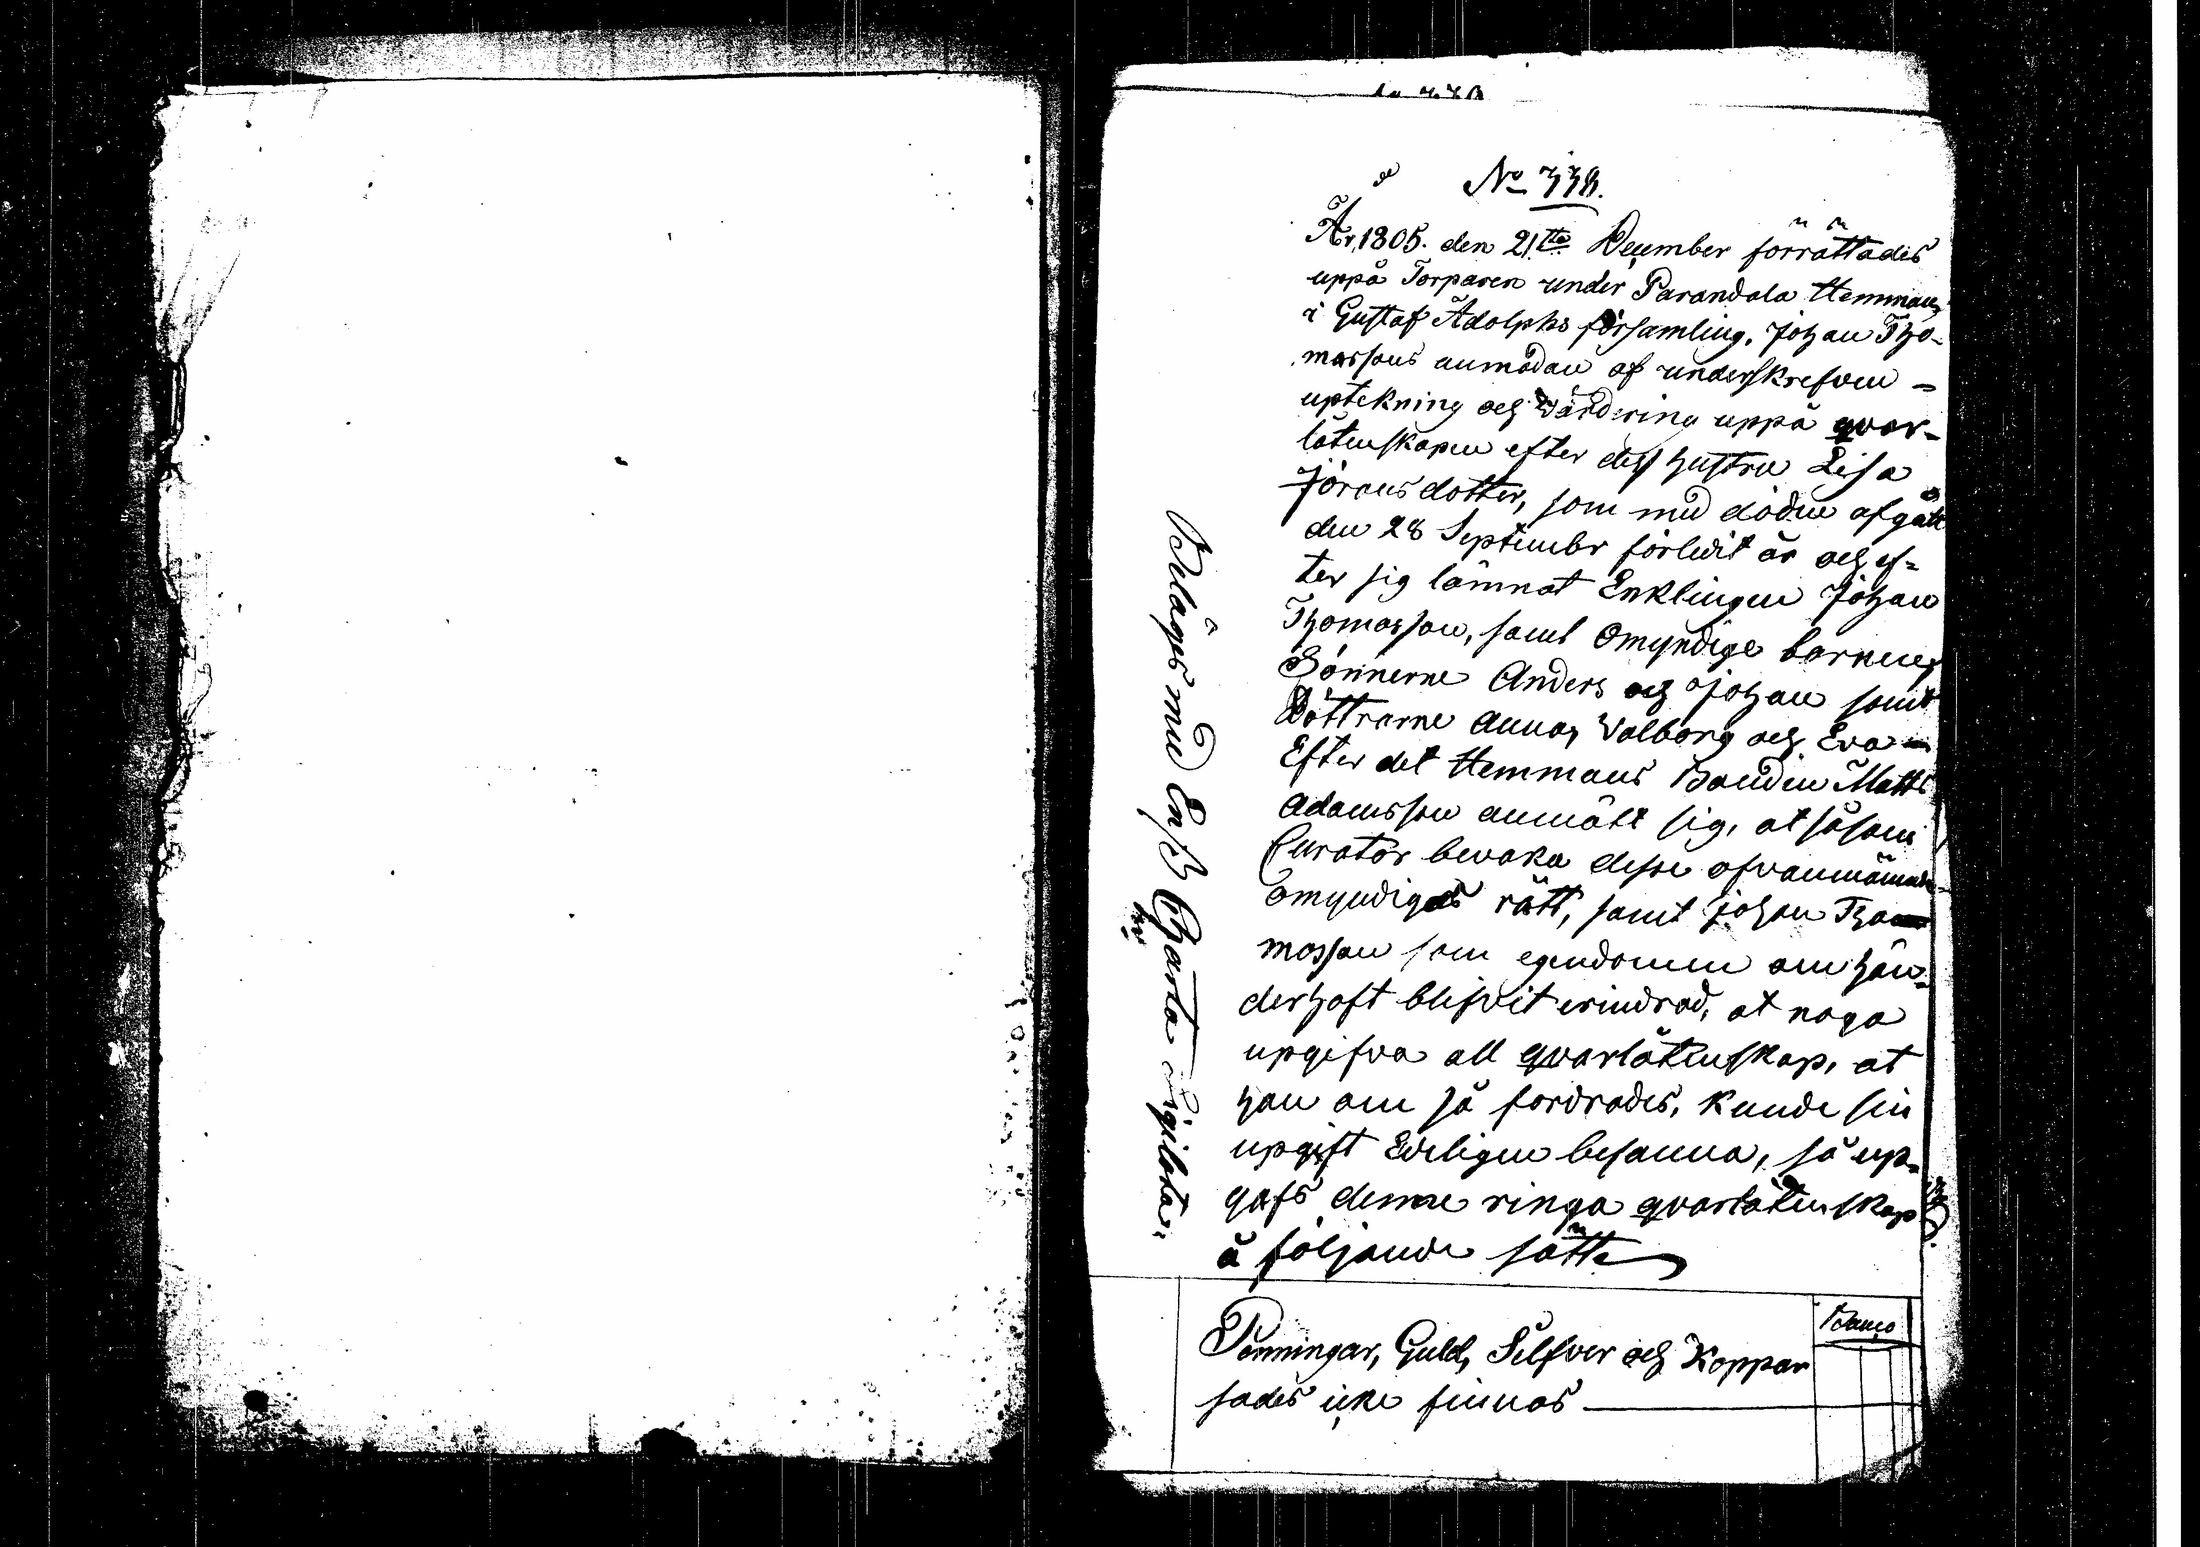 No 779.
År 1805. den 21.sta December förrättades
uppå Torparen under Parandala Hemman
i Gustaf Adolphs församling, Johan Tho-
massons anmodan af underskrefven -
uptekning och värdering uppå qvar-
låtenskapen efter dess hustru Lisa
Jöransdotter, som med döden afgått
den 28 Septembr förledit år och ef-
ter sig lämnat Enklingen Johan
Thomasson, samt Omyndige barnen,
Sönnerne Anders och Johan samt
Döttrarne Anna, Valborg och Eva -
Efter det Hemmans Bonden Matts
Adamsson anmält sig, at såsom
Curator bevaka desse ofvannämnde
omyndigas rätt, samt Johan Tho-
masson som egendomen om hän-
derhaft blifvit erindrad, at noga
upgifva all qvarlåtenskap, at
han om så fordrades, kunde sin
upgift Edeligen besanna, så up-
gafs denne ringa qvarlåtenskap
å följande sätt
Belägges med En ß Charta Sigilata.
Banco
Penningar, Guld, Silfver och Koppar
sades icke finnas